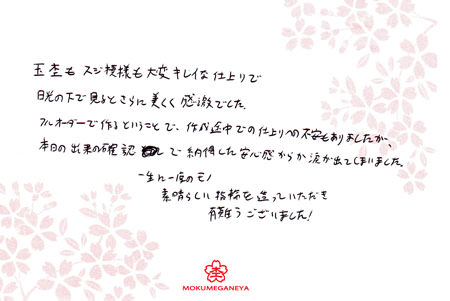 玉杢も スジ模様も大変キレイな仕上りで
日光の下で見るとさらに美しく感激でした。
フルオーダーで作るということで、作成途中での仕上りへの不安もありましたが、
本日の出来の確認 して納得した安心感からか涙が出てしまいました。
一生に一度のモノ
素晴らしい指輪を造っていただき
有難うございました!
MOKUMEGANEYA